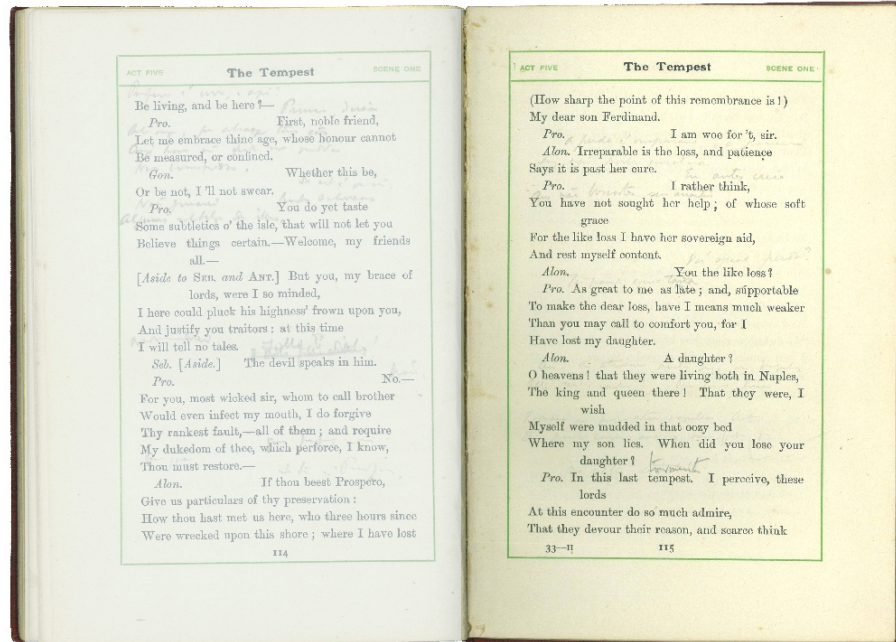 ACT FIVE The Tempest SCENE ONE
Be living, and be here ?—
Pro. First, noble friend,
Let me embrace thine age, whose honour cannot
Be measured, or confined.
Gon. Whether this be,
Or be not, I 'll not swear.
Pro. You do yet taste
Some subtleties o' the isle, that will not let you
Believe things certain.—Welcome, my friends
all.—
[Aside to SEB. and ANT.] But you, my brace of
lords, were I so minded,
I here could pluck his highness' frown upon you,
And justify you traitors : at this time
I will tell no tales.
Seb. [Aside.] The devil speaks in him.
Pro. No.—
For you, most wicked sir, whom to call brother
Would even infect my mouth, I do forgive
Thy rankest fault,—all of them ; and require
My dukedom of thee, which perforce, I know,
Thou must restore.—
Alon. If thou beest Prospero,
Give us particulars of thy preservation :
How thou hast met us here, who three hours since
Were wrecked upon this shore ; where I have lost
114
ACT FIVE The Tempest SCENE ONE
(How sharp the point of this remembrance is !)
My dear son Ferdinand.
Pro. I am woe for 't, sir.
Alon. Irreparable is the loss, and patience
Says it is past her cure.
Pro. I rather think,
You have not sought her help ; of whose soft
grace
For the like loss I have her sovereign aid,
And rest myself content.
Alon. You the like loss ?
Pro. As great to me as late ; and, súpportable
To make the dear loss, have I means much weaker
Than you may call to comfort you, for I
Have lost my daughter.
Alon. A daughter ?
O heavens ! that they were living both in Naples,
The king and queen there ! That they were, I
wish
Myself were mudded in that oozy bed
Where my son lies. When did you lose your
daughter ?
torment
Pro. In this last tempest. I perceive, these
lords
At this encounter do so much admire,
That they devour their reason, and scarce think
33—II 115